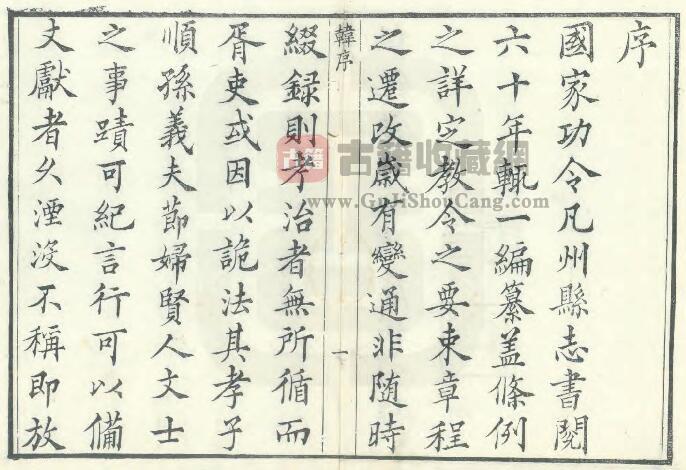 序
國家功令凡州縣志書閱
六十年輒一編纂蓋條例
之詳定教令之要束章程
之遷改歲有變通非随時
韓序
一
綴録則考治者無所循而
胥吏或因以詭法其孝子
順孫義夫節婦賢人文士
之事蹟可紀言行可以備
文獻者久湮沒不稱即放
古籍
古籍收藏網
www.GuJiShouCang.com